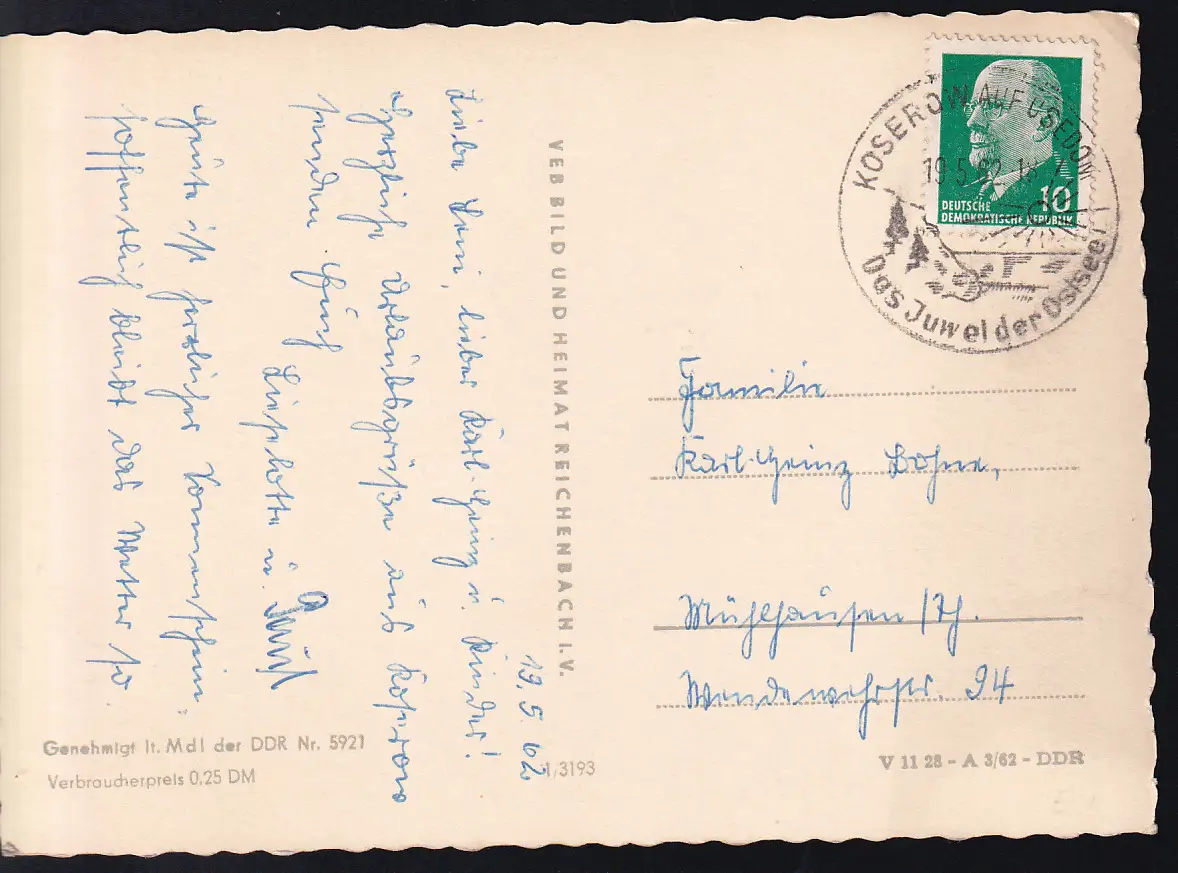 19.5.62
Liebe Leni, lieber Karl-Heinz u. Kinder!
Herzliche Urlaubsgrüße aus Koserow
senden Euch
Lieselotte u.
Heute ist herrlicher Sonnenschein,
hoffentlich bleibt das Wetter so
VEB BILD UND HEIMAT REICHENBACH I. V.
KOSEROW AUF USEDOM
19.5.62-18
Das Juwel der Ostsee!
10
DEUTSCHE
DEMOKRATISCHE REPUBLIK
Familie
Karl-Heinz Bohne,
Mühlhausen/Th.
Wendewehrstr. 94
Genehmigt lt. MdI der DDR Nr. 5921
Verbraucherpreis 0,25 DM
1/3193
V 11 28 - A 3/62 - DDR